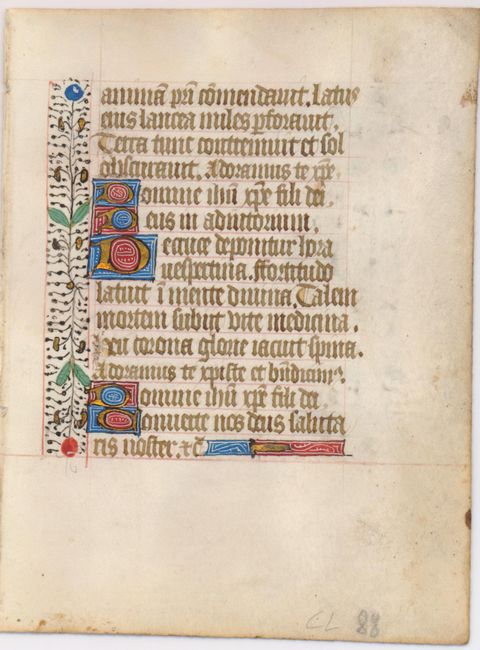 animam pri comendavit. Latus
eius lancea miles pforavit.
Terra tunc contremuit et sol
obscuravit. Adoramus te xpe.
Domine ihu xpe fili dei.
Deus in adiutorium.
De cruce deponitur hora
vespertina. ffortitudo
latuit i mente divina. Talem
mortem subiit vite medicina.
heu corona glorie iacuit spina.
Adoramus te xpiste et bndicim9.
Domine ihu xpe fili dei
Converte nos deus saluta
ris noster. &c
CL 88